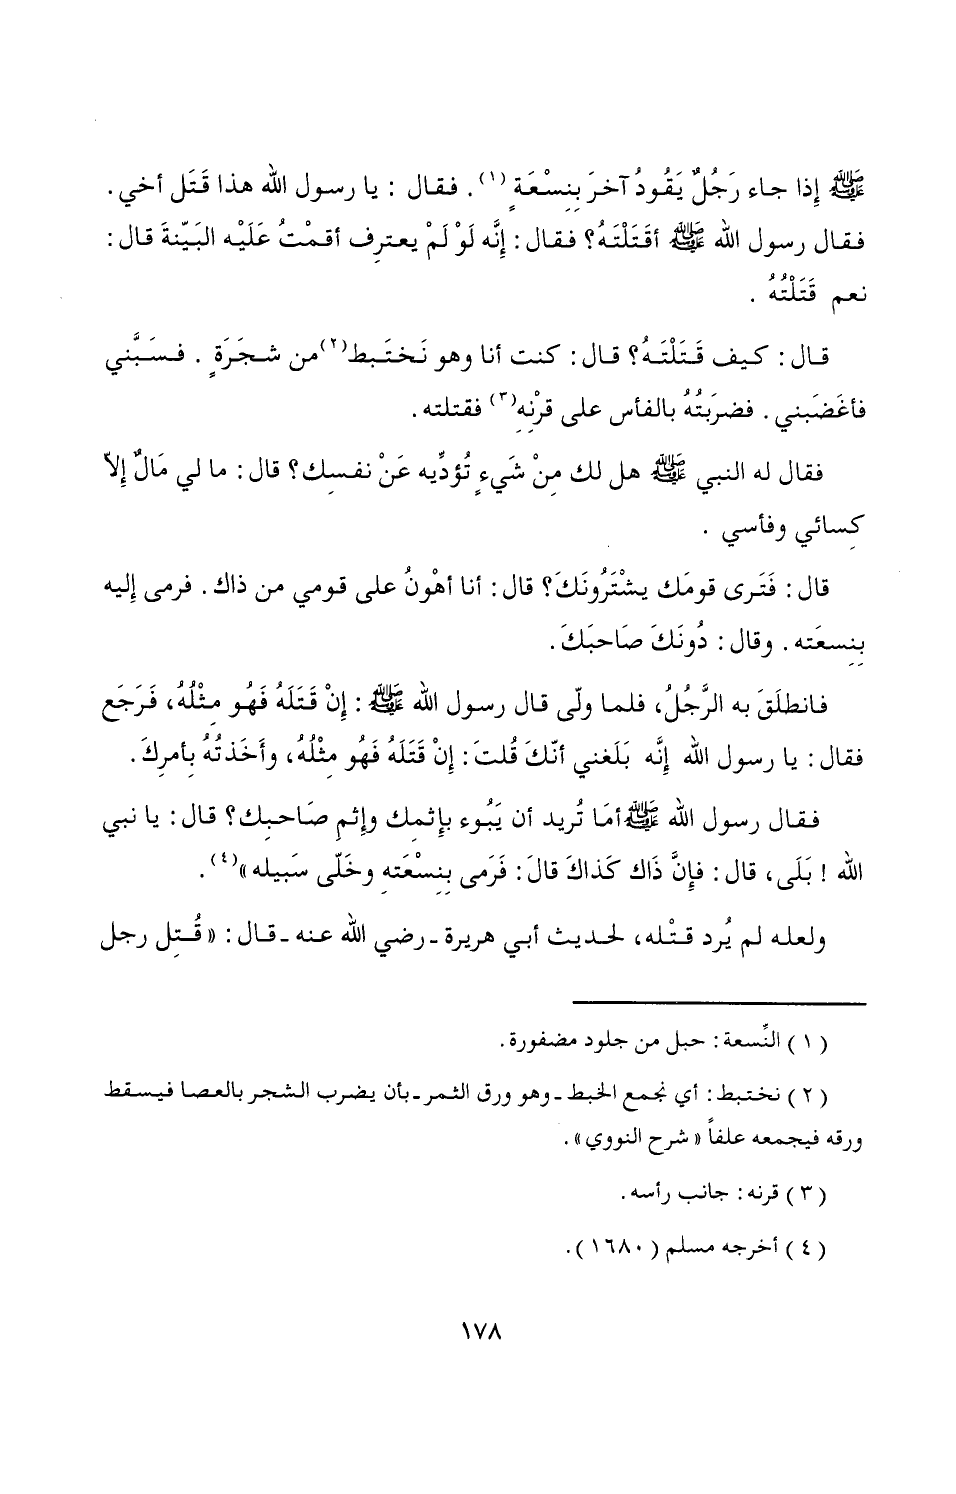 ﷺ إذا جاء رَجُلٌ يَقُودُ آخرَ بِنِسْعَةٍ (١). فقال : يا رسول الله هذا قَتَل أخي .
فقال رسول الله ﷺ أقتَلْتَهُ؟ فقال : إنَّه لَوْ لَمْ يعترِف أقمْتُ عَلَيْه البَيّنةَ قال :
نعم قَتَلْتُهُ .
قال : كيف قَتَلْتَهُ؟ قال : كنت أنا وهو نَختَبط(٢) من شجَرَةٍ . فسَبَّني
فأغضَبني . فضرَبتُهُ بالفأس على قرْنِهِ(٣) فقتلته .
فقال له النبي ﷺ هل لك مِنْ شَيءٍ تُؤدِّيه عَنْ نفسِك؟ قال : ما لي مَالٌ إلاّ
كِسائي وفأسي .
قال : فَتَرى قومَك يشْتَرُونَكَ؟ قال : أنا أهْونُ على قومي من ذاك . فرمى إليه
بِنِسعَته . وقال : دُونَكَ صَاحبَكَ .
فانطلَقَ به الرَّجُلُ، فلما ولّى قال رسول الله ﷺ : إنْ قَتَلَهُ فَهُو مِثْلُهُ، فَرَجَع
فقال : يا رسول الله إنَّه بَلَغني أنّكَ قُلتَ : إنْ قَتَلَهُ فَهُو مِثْلُهُ، وأَخَذتُهُ بأمرِكَ .
فقال رسول الله ﷺ أمَا تُريد أن يَبُوء بإثمِك وإثمِ صَاحبِك؟ قال : يا نبي
الله ! بَلَى، قال : فإنَّ ذَاك كَذاكَ قالَ : فَرَمى بِنِسْعَته وخَلّى سَبيله»(٤) .
ولعله لم يُرد قتْله، لحديث أبي هريرة ـ رضي الله عنه ـ قال : «قُتِل رجل
(١) النِّسعة : حبل من جلود مضفورة .
(٢) نختبط : أي نجمع الخبط ـ وهو ورق الثمر ـ بأن يضرب الشجر بالعصا فيسقط
ورقه فيجمعه علفاً «شرح النووي» .
(٣) قرنه : جانب رأسه .
(٤) أخرجه مسلم (١٦٨٠) .
١٧٨